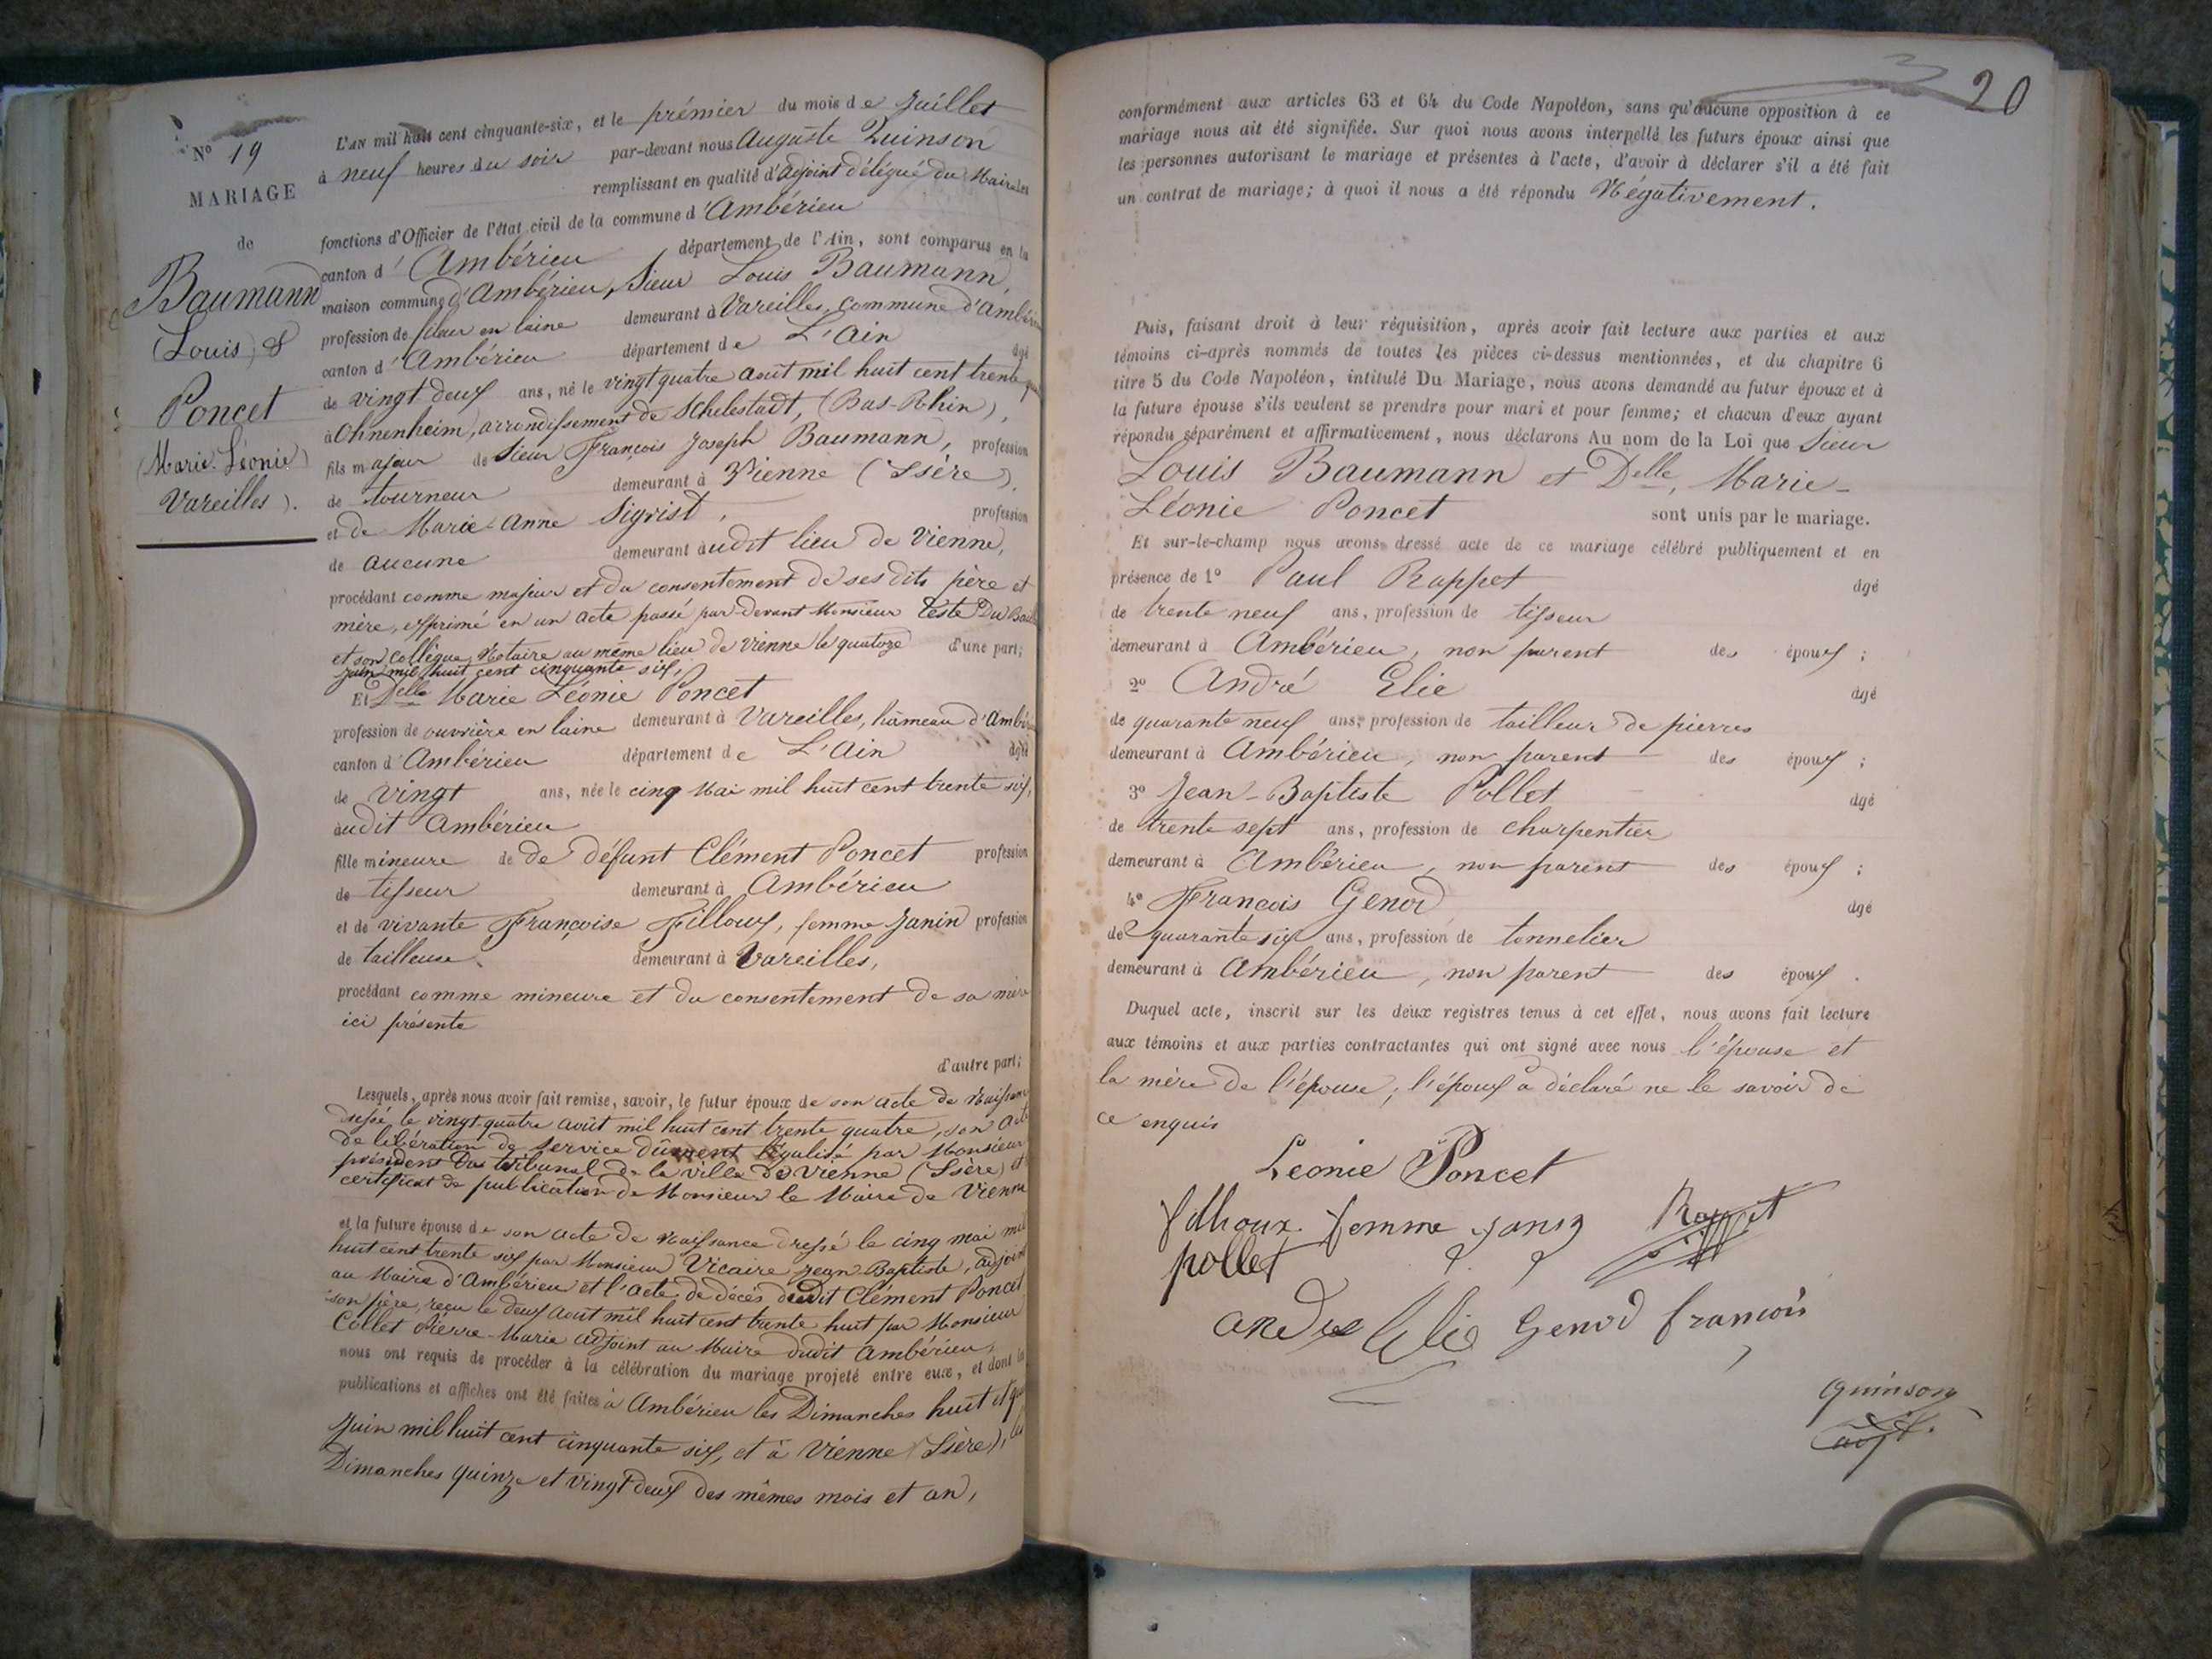 N° 19
MARIAGE
de
Baumann
(Louis) &
Poncet
(Marie-Léonie)
Vareilles).
L'AN mil huit cent cinquante-six, et le prémier du mois de Juillet
à neuf heures du soir par-devant nous Auguste Quinson
remplissant en qualité d'Adjoint délégué du Maire les
fonctions d'Officier de l'état civil de la commune d'Ambérieu
canton d'Ambérieu département de l'Ain, sont comparus en la
maison commune d'Ambérieu, Sieur Louis Baumann,
profession de fileur en laine demeurant à Vareilles, commune d'Ambérieu
canton d'Ambérieu département de L'Ain âgé
de vingt deux ans, né le vingt quatre août mil huit cent trente
à Ohnenheim, arrondissement de Schelestadt, (Bas-Rhin),
fils majeur de Sieur François Joseph Baumann, profession
de tourneur demeurant à Vienne (Isère),
et de Marie-Anne Sigrist, profession
de aucune demeurant audit lieu de Vienne,
procédant comme majeur et du consentement de ses dits père et
mère, exprimé en un acte passé par-devant Monsieur Teste Du
et son collègue, Notaire au même lieu de Vienne le quatorze d'une part;
juin mil huit cent cinquante six,
Et Delle Marie Léonie Poncet
profession de ouvrière en laine demeurant à Vareilles, hâmeau d'
canton d'Ambérieu département de L'Ain âgée
de vingt ans, née le cinq Mai mil huit cent trente six,
audit Ambérieu
fille mineure de de défunt Clément Poncet profession
de tisseur demeurant à Ambérieu
et de vivante Françoise Filloux, femme Janin profession
de tailleuse demeurant à Vareilles,
procédant comme mineure et du consentement de sa mère
ici présente
d'autre part;
Lesquels, après nous avoir fait remise, savoir, le futur époux de son acte de Naissance
dressé le vingt-quatre août mil huit cent trente quatre, son acte
de libération de service dûment légalisé par Monsieur
président du tribunal de la ville de Vienne (Isère) et
certificat de publication de Monsieur le Maire de Vienne
et la future épouse de son acte de Naissance dressé le cinq mai mil
huit cent trente six par Monsieur Vicaire Jean-Baptiste, adjoint
au Maire d'Ambérieu et l'acte de décès dudit Clément Poncet
son père, reçu le deux août mil huit cent trente huit par Monsieur
Collet Pierre-Marie adjoint au Maire dudit Ambérieu,
nous ont requis de procéder à la célébration du mariage projeté entre eux, et dont les
publications et affiches ont été faites à Ambérieu les Dimanches huit et
Juin mil huit cent cinquante six, et à Vienne (Isère), les
Dimanches quinze et vingt deux des mêmes mois et an,
20
conformément aux articles 63 et 64 du Code Napoléon, sans qu'aucune opposition à ce
mariage nous ait été signifiée. Sur quoi nous avons interpellé les futurs époux ainsi que
les personnes autorisant le mariage et présentes à l'acte, d'avoir à déclarer s'il a été fait
un contrat de mariage; à quoi il nous a été répondu Négativement.
Puis, faisant droit à leur réquisition, après avoir fait lecture aux parties et aux
témoins ci-après nommés de toutes les pièces ci-dessus mentionnées, et du chapitre 6
titre 5 du Code Napoléon, intitulé Du Mariage, nous avons demandé au futur époux et à
la future épouse s'ils veulent se prendre pour mari et pour femme; et chacun d'eux ayant
répondu séparément et affirmativement, nous déclarons Au nom de la Loi que Sieur
Louis Baumann et Delle, Marie-
Léonie Poncet sont unis par le mariage.
Et sur-le-champ nous avons dressé acte de ce mariage célébré publiquement et en
présence de 1° Paul Rappet âgé
de trente neuf ans, profession de tisseur
demeurant à Ambérieu, non parent des époux;
2° André Elie âgé
de quarante neuf ans, profession de tailleur de pierres
demeurant à Ambérieu, non parent des époux;
3° Jean-Baptiste Pollet âgé
de trente sept ans, profession de charpentier
demeurant à Ambérieu, non parent des époux;
4° François Genod âgé
de quarante six ans, profession de tonnelier
demeurant à Ambérieu, non parent des époux.
Duquel acte, inscrit sur les deux registres tenus à cet effet, nous avons fait lecture
aux témoins et aux parties contractantes qui ont signé avec nous l'épouse et
la mère de l'épouse; l'époux a déclaré ne le savoir de
ce enquis
Leonie Poncet
filhoux femme janin Rappet
pollet
andre Elie Genod francois
quinson
adjt.